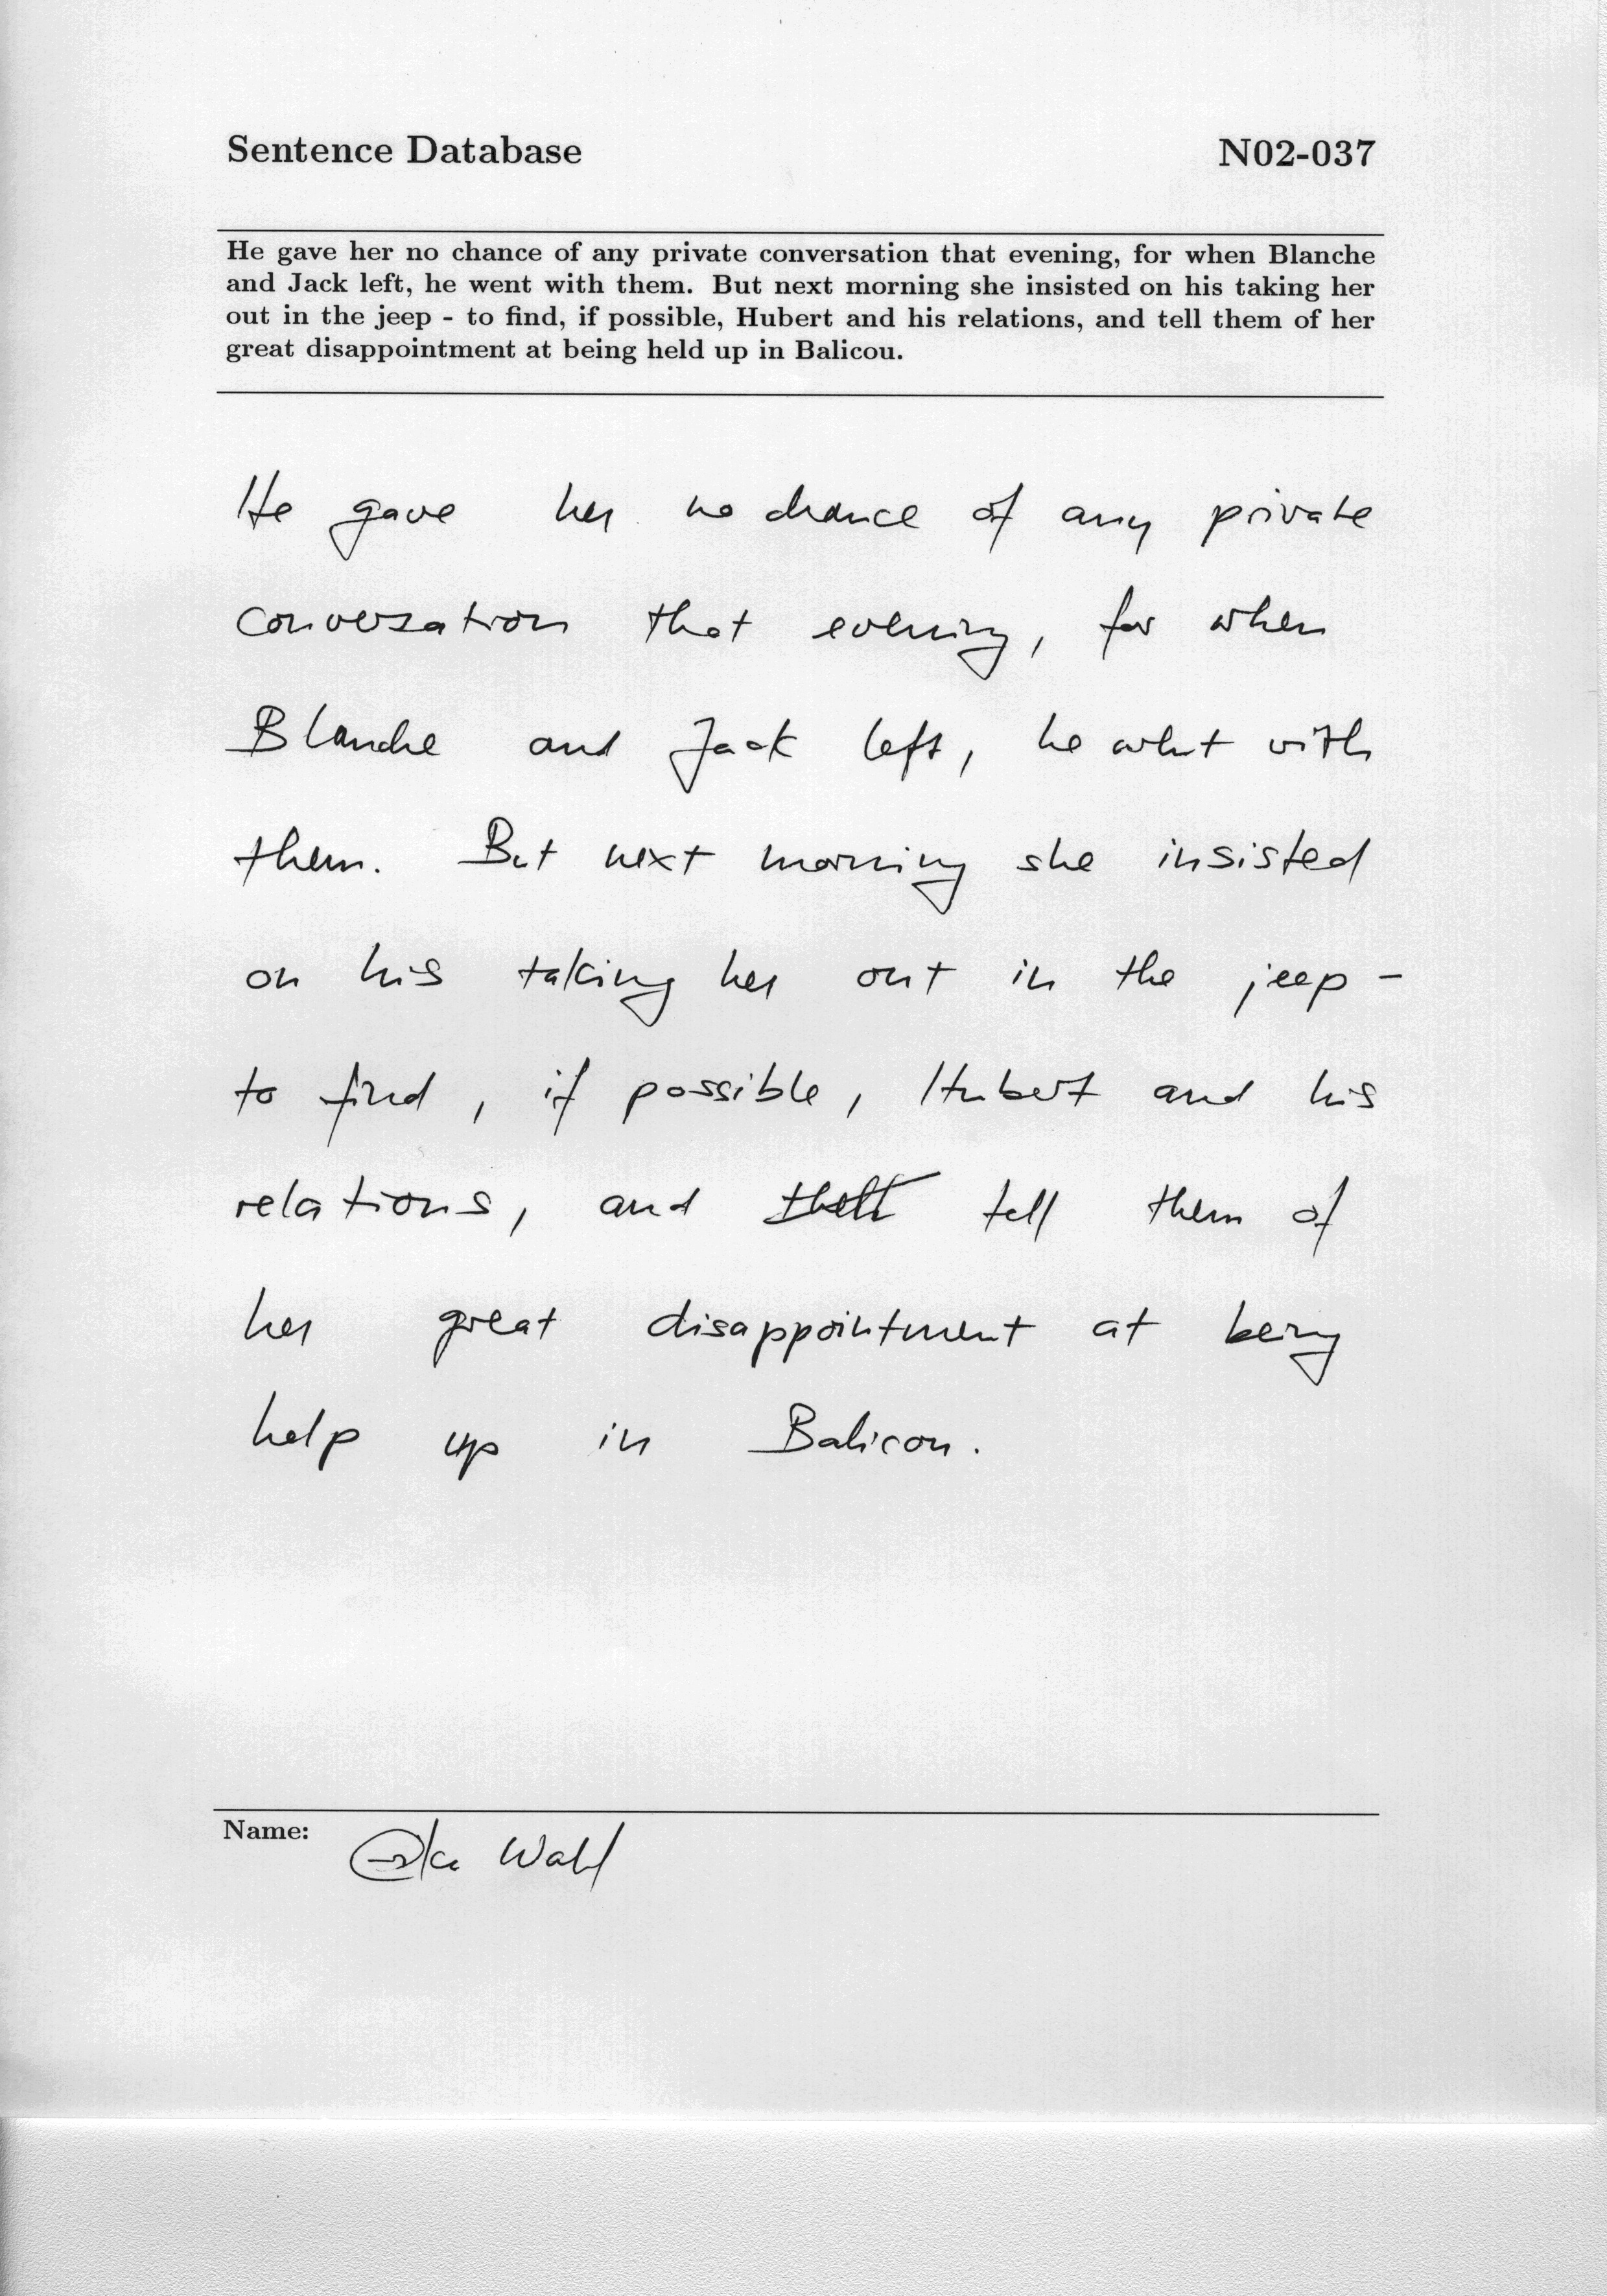 Sentence Database N02-037
He gave her no chance of any private conversation that evening, for when Blanche
and Jack left, he went with them. But next morning she insisted on his taking her
out in the jeep - to find, if possible, Hubert and his relations, and tell them of her
great disappointment at being held up in Balicou.
He gave her no chance of any private
conversation that evening, for when
Blanche and Jack left, he went with
them. But next morning she insisted
on his taking her out in the jeep -
to find, if possible, Hubert and his
relations, and tell them of
her great disappointment at being
help up in Balicou.
Name: Wahl